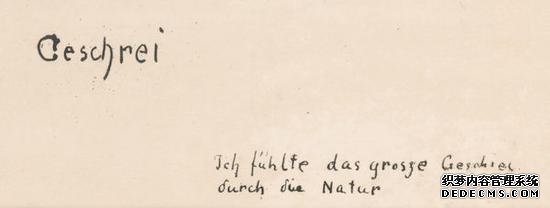 Geschrei
Ich fühlte das grosze Geschrei
durch die Natur
织梦内容管理系统
DEDECMS.COM